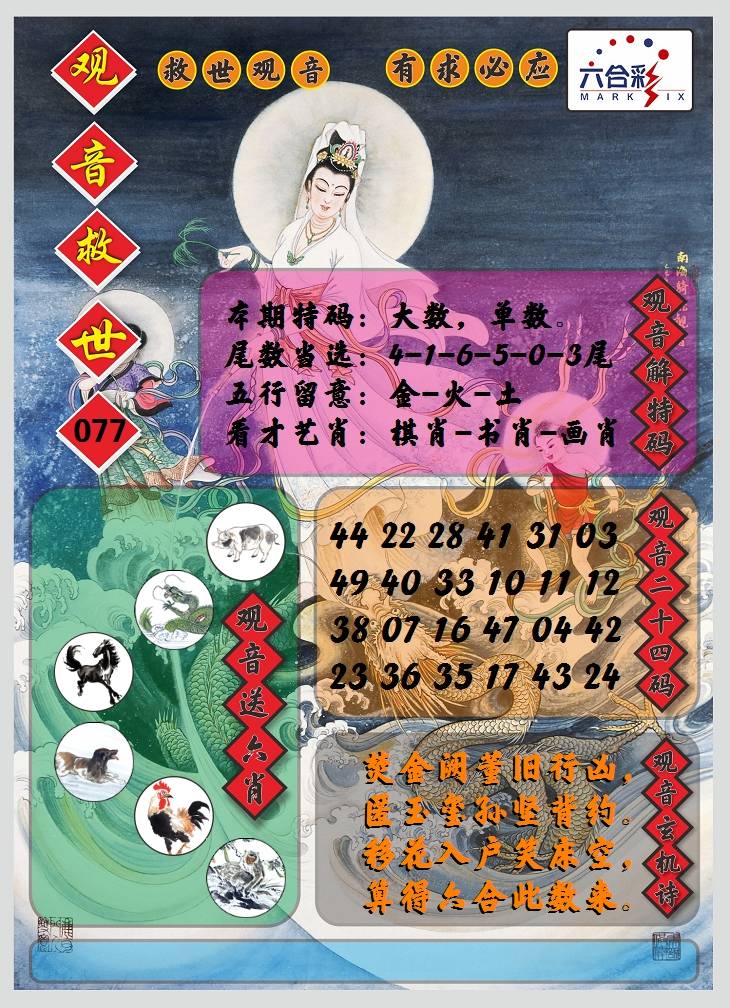 观音救世
077
救世观音 有求必应
六合彩
MARK SIX
南海
本期特码：大数，单数。
尾数当选：4-1-6-5-0-3尾
五行留意：金-火-土
看才艺肖：棋肖-书肖-画肖
观音解特码
44 22 28 41 31 03
49 40 33 10 11 12
38 07 16 47 04 42
23 36 35 17 43 24
观音二十四码
观音送六肖
焚金阙董旧行凶，
匿玉玺孙坚背约。
移花入户笑床空，
算得六合此数来。
观音玄机诗